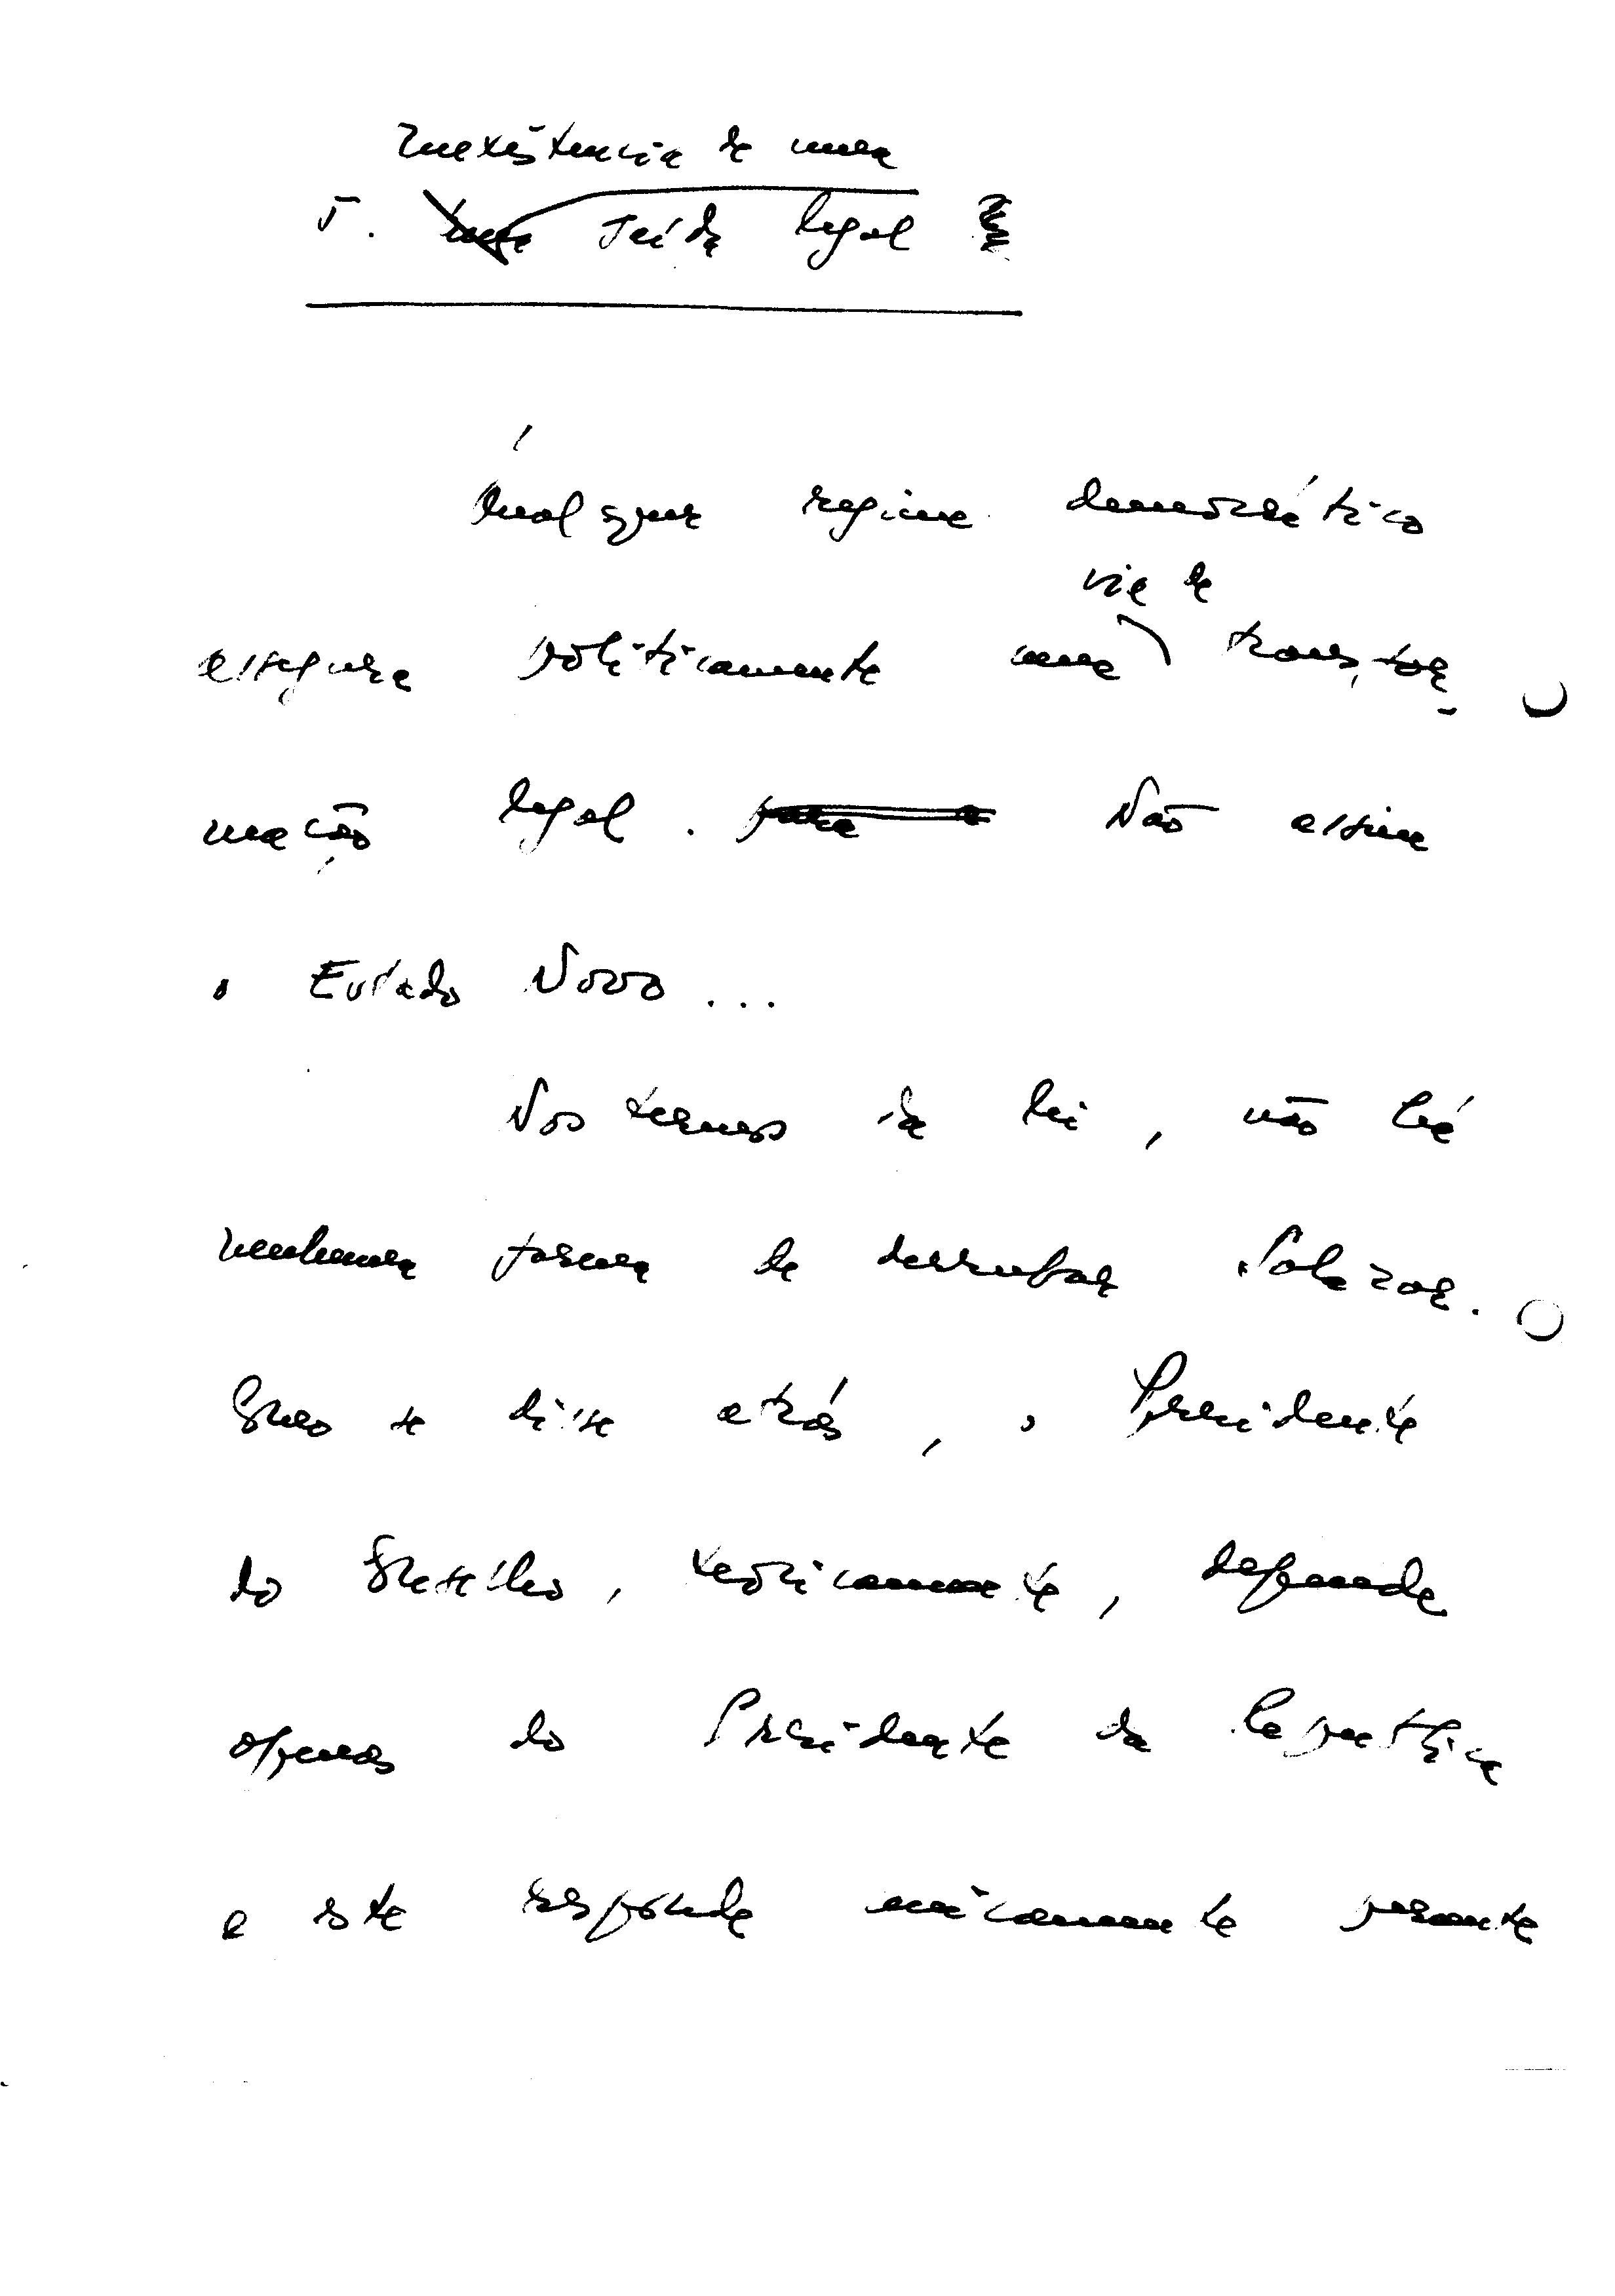 Inexistência de uma
5. saída legal
Qualquer regime democrático
via de
assegura politicamente uma transfor-
mação legal. Não assim
o Estado Novo...
Nos termos da lei, não há
nenhuma forma de derrubar Salazar.
Como se disse atrás, o Presidente
do Conselho, teoricamente, depende
apenas do Presidente da República
e este responde unicamente perante